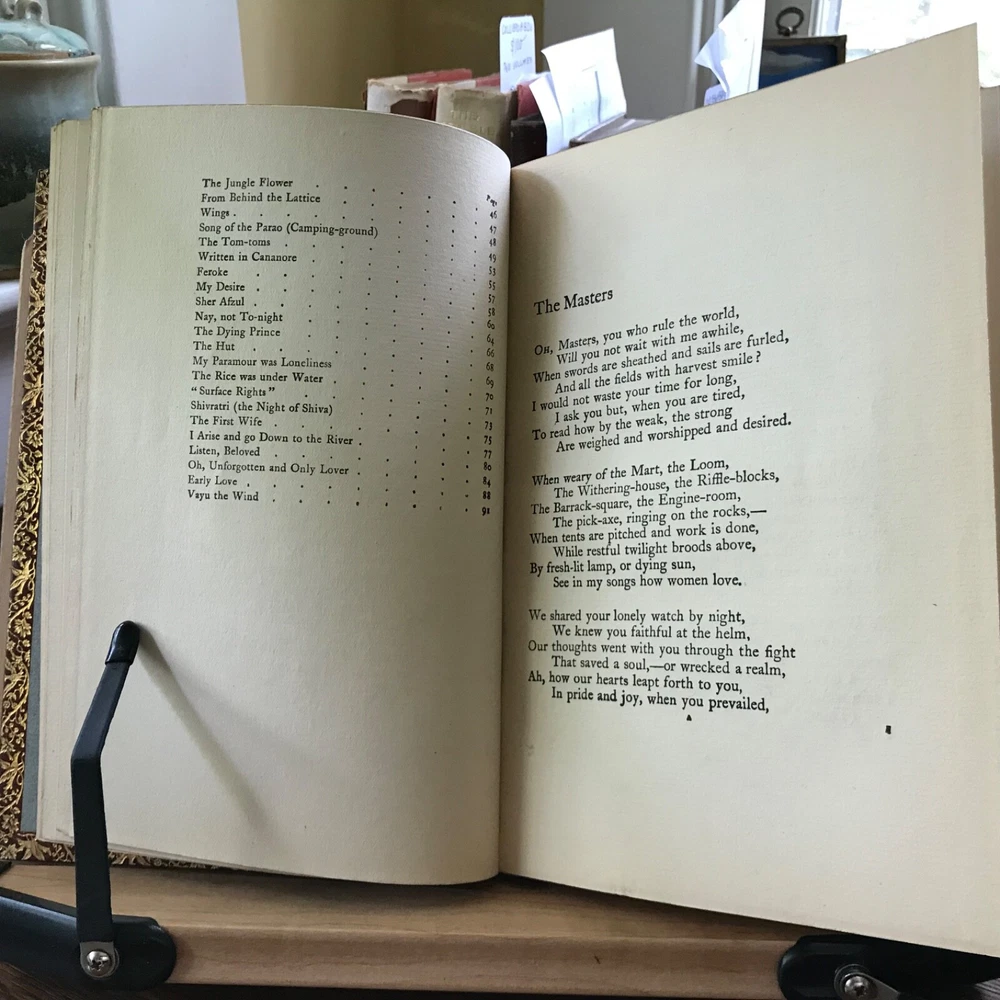 Page
The Jungle Flower . . . . . . . 46
From Behind the Lattice . . . . . . 47
Wings . . . . . . . . 48
Song of the Parao (Camping-ground) . . . . 49
The Tom-toms . . . . . . . 53
Written in Cananore . . . . . . 55
Feroke . . . . . . . . 57
My Desire . . . . . . . . 58
Sher Afzul . . . . . . . . 60
Nay, not To-night . . . . . . . 64
The Dying Prince . . . . . . . 66
The Hut . . . . . . . . 68
My Paramour was Loneliness . . . . . 69
The Rice was under Water . . . . . . 70
“Surface Rights” . . . . . . . 71
Shivratri (the Night of Shiva) . . . . . 73
The First Wife . . . . . . . 75
I Arise and go Down to the River . . . . . 77
Listen, Beloved . . . . . . . 80
Oh, Unforgotten and Only Lover . . . . . 84
Early Love . . . . . . . . 88
Vayu the Wind . . . . . . . 91
The Masters
Oh, Masters, you who rule the world,
Will you not wait with me awhile,
When swords are sheathed and sails are furled,
And all the fields with harvest smile?
I would not waste your time for long,
I ask you but, when you are tired,
To read how by the weak, the strong
Are weighed and worshipped and desired.
When weary of the Mart, the Loom,
The Withering-house, the Riffle-blocks,
The Barrack-square, the Engine-room,
The pick-axe, ringing on the rocks,—
When tents are pitched and work is done,
While restful twilight broods above,
By fresh-lit lamp, or dying sun,
See in my songs how women love.
We shared your lonely watch by night,
We knew you faithful at the helm,
Our thoughts went with you through the fight
That saved a soul,—or wrecked a realm,
Ah, how our hearts leapt forth to you,
In pride and joy, when you prevailed,